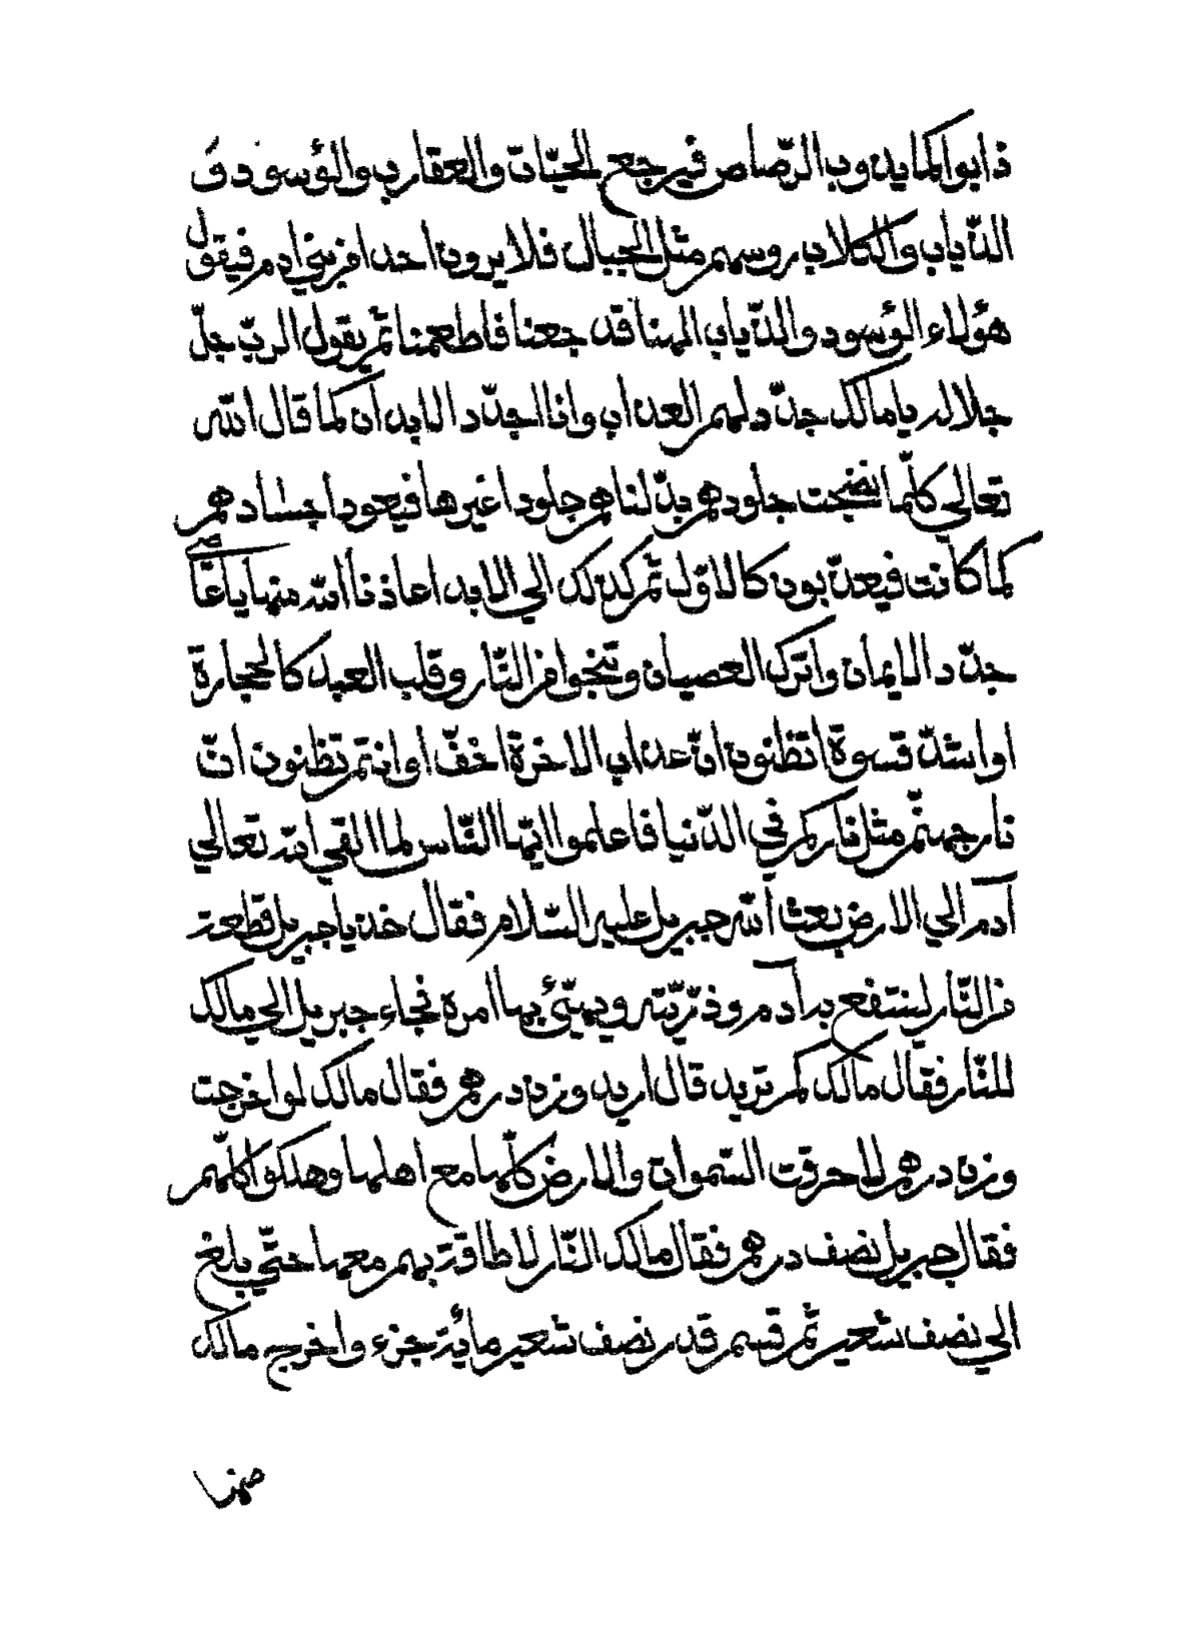 ذابوا كما يذوب الرّصاص فيرجع الحيّات والعقارب والؤسود و
الذّياب والكلاب روسهم مثل الجبال فلا يرون احدا من بني ادم فيقول
هؤلاء الؤسود والذّياب الهنا قد جعنا فاطعمنا ثمّ يقول الربّ جلّ
جلاله يا مالك جدّد لهم العذاب وانا اجدّد الابدان كما قال الله
تعالي كلّما نضجت جلودهم بدّلناهم جلودا غيرها فيعود اجسادهم
كما كانت فيعذّبون كالاوّل ثمّ كذلك الي الابد اعاذنا الله منها يا عاصي
جدّد الايمان واترك العصيان وتنجوا من النّار وقلب العبد كالحجارة
او اشدّ قسوة اتظنون انّ عذاب الاخرة اخفّ او انتم تظنون انّ
نار جهنّم مثل ناركم في الدّنيا فاعلموا ايّها النّاس لما القي الله تعالي
آدم الي الارض بعث الله جبريل عليه السّلام فقال خذ يا جبريل قطعة
من النّار لينتفع به آدم وذرّيّته ويهيّئ بها امره فجاء جبريل الي مالك
للنّار فقال مالك كم تريد قال اريد وزن درهم فقال مالك لو اخرجت
وزن درهم لاحرقت السّموات والارض كلّها مع اهلها وهلكوا كلّهم
فقال جبريل نصف درهم فقال مالك النّار لا طاقة بهم معها حتّي بلغ
الي نصف شعير ثم قسم قدر نصف شعير مأية جزء واخرج مالك
منها